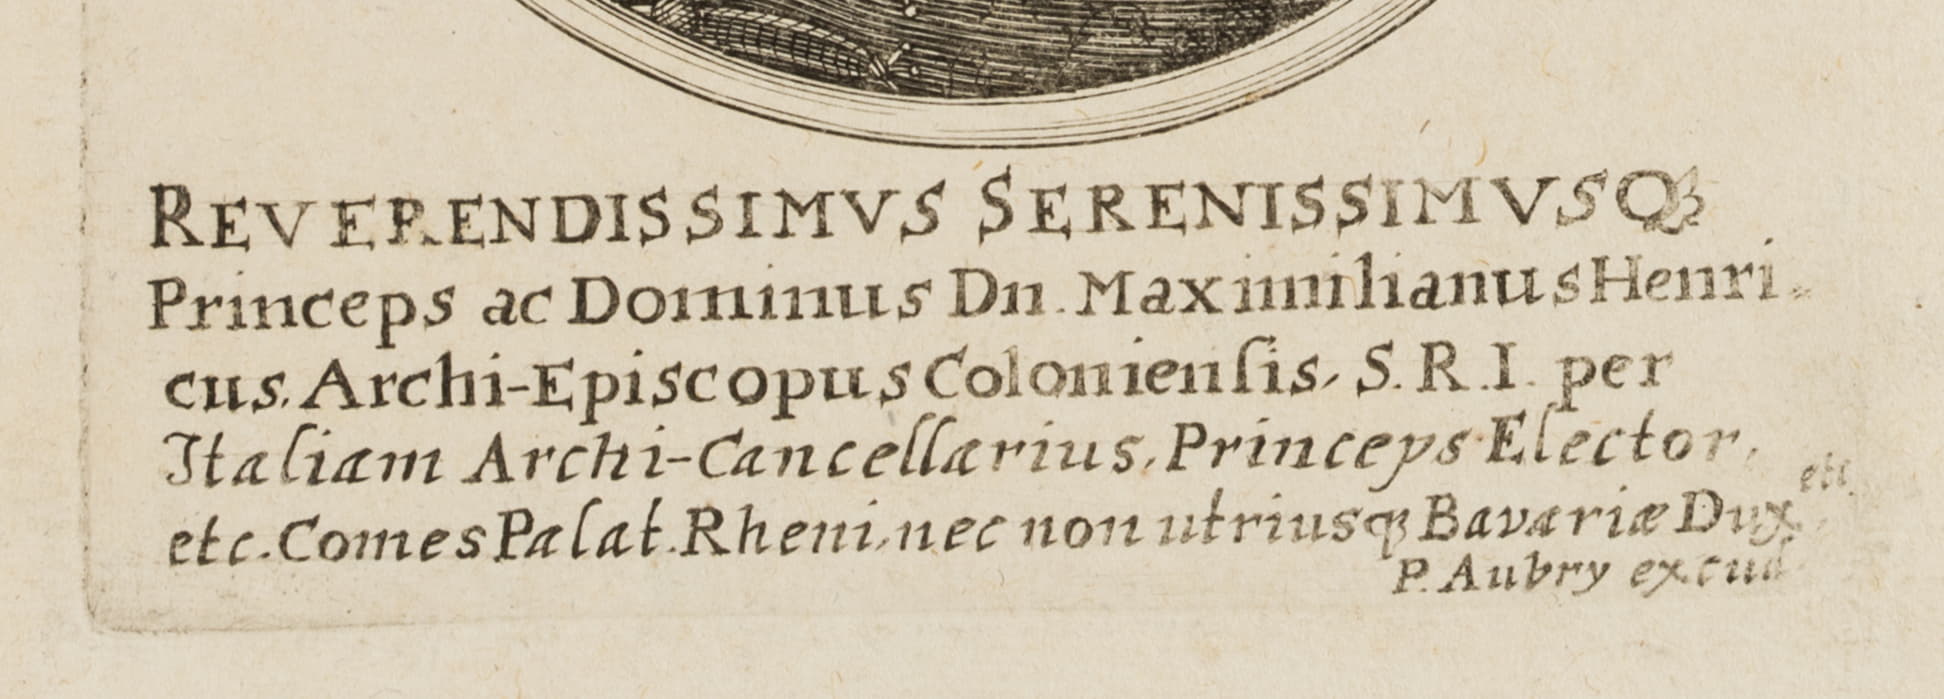 REVERENDISSIMVS SERENISSIMVSQꝫ
Princeps ac Dominus Dn. Maximilianus Henri-
cus. Archi-Episcopus Colonienſis, S. R. I. per
Italiam Archi-Cancellarius, Princeps Elector,
etc. Comes Palat. Rheni, nec non utriusqꝫ Bavariæ Dux etc
P. Aubry excud